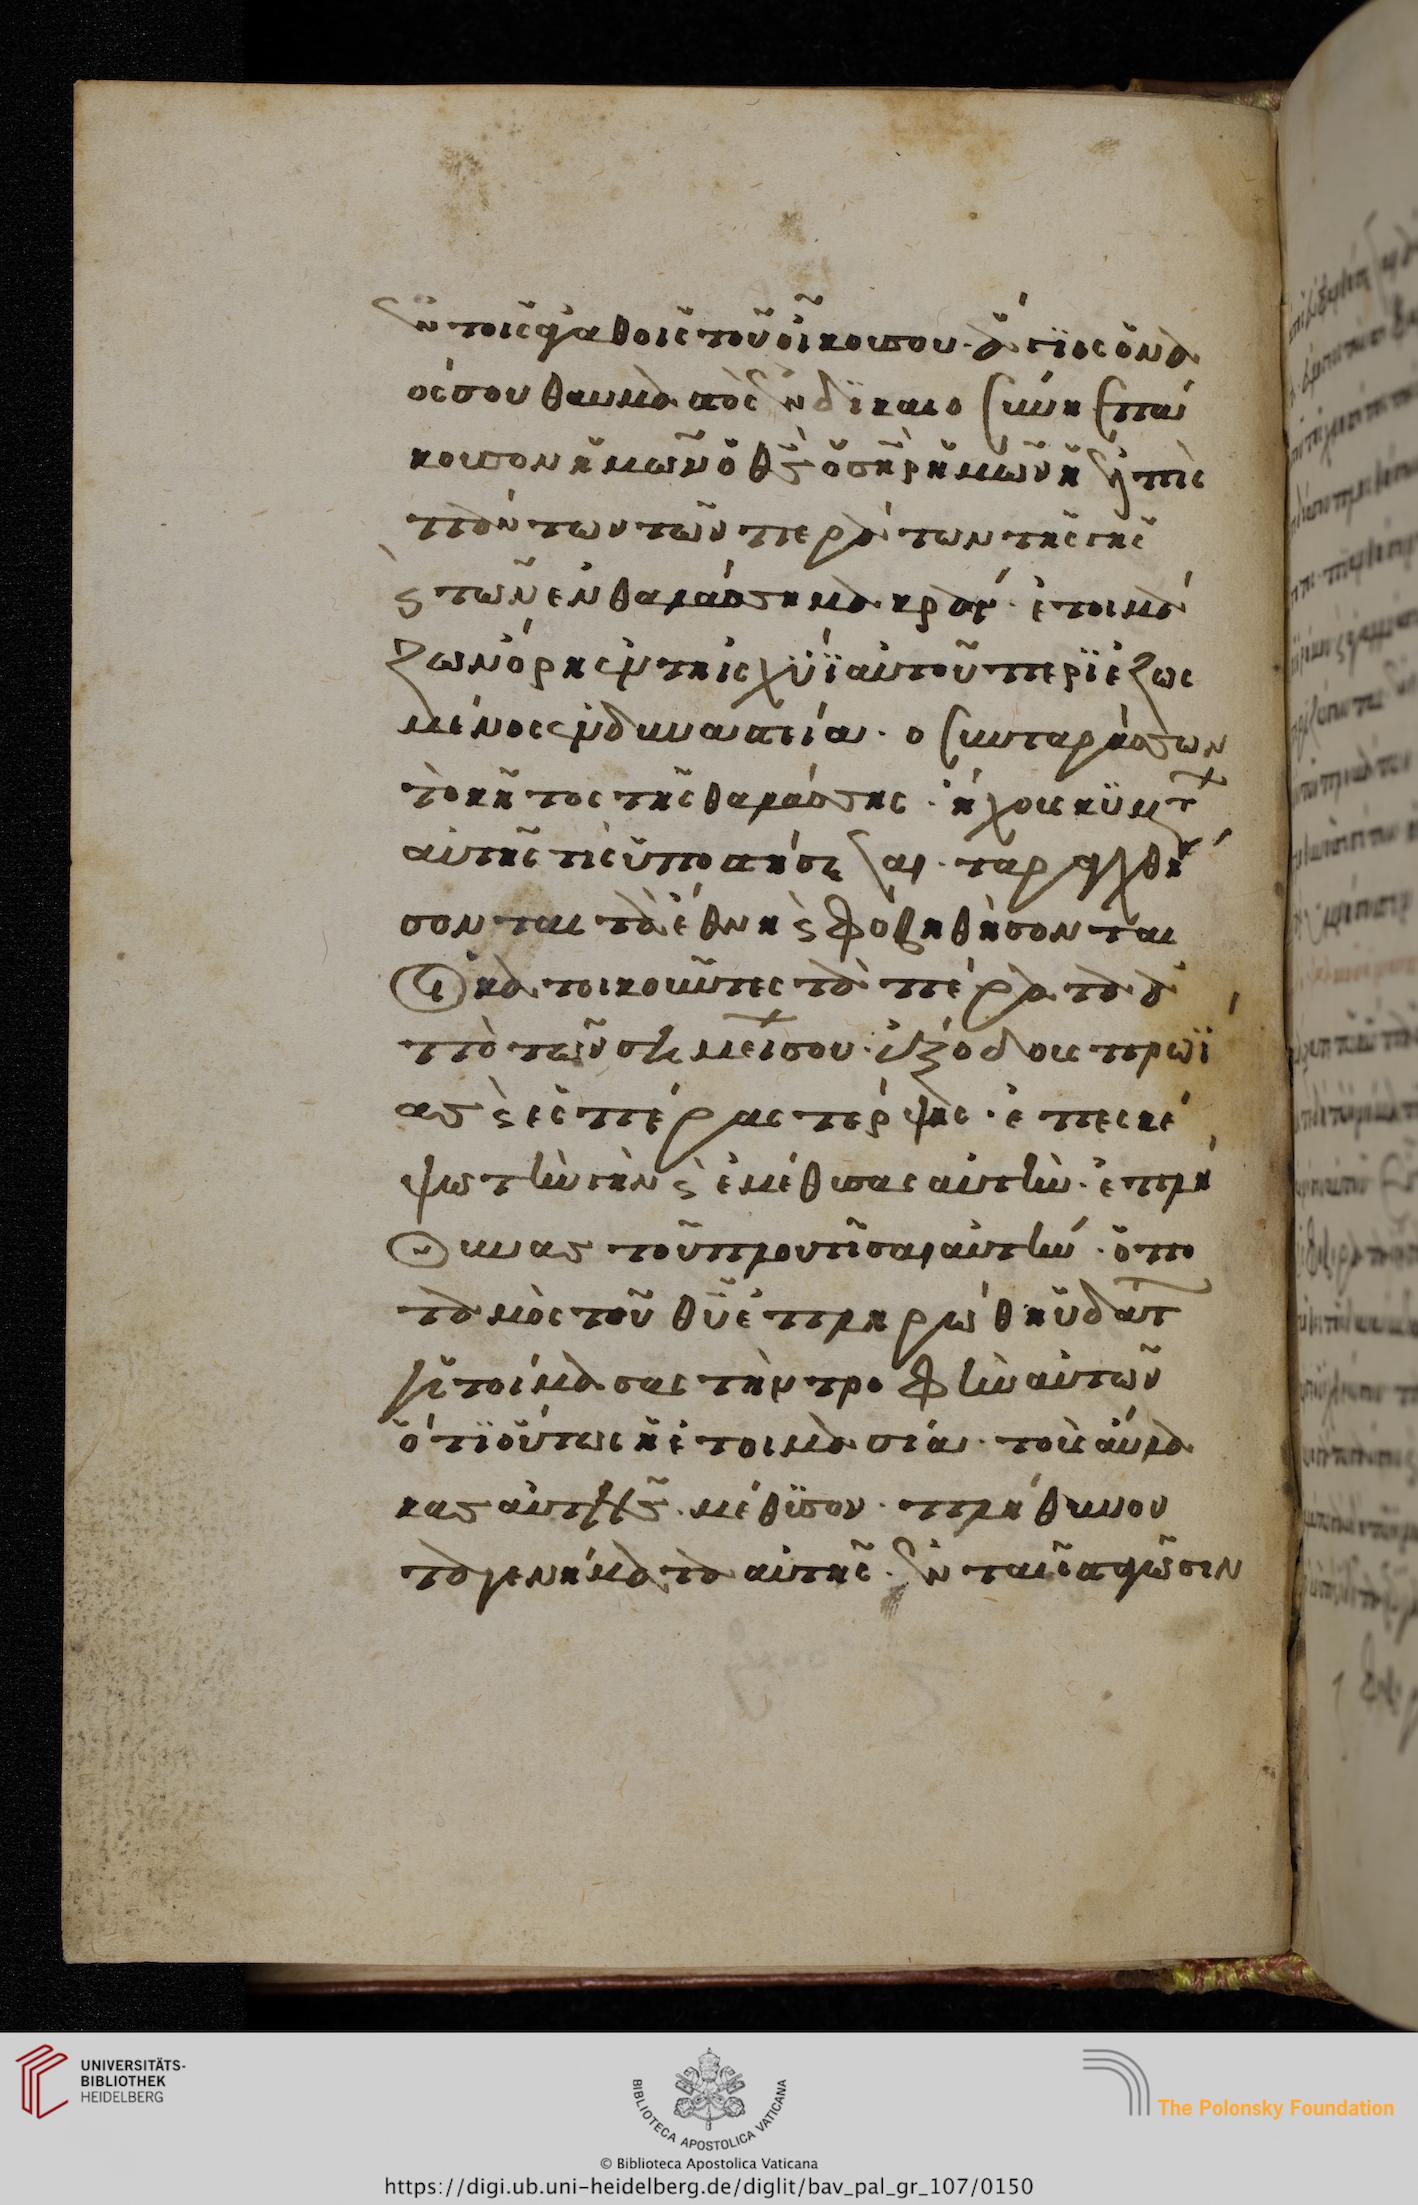 ἐν τοῖς ἀγαθοῖς τοῦ οἴκου σου· ἅγιος ὁ να
ός σου θαυμαστὸς ἐν δϊκαιοσύνη ἐπά
κουσον ἡμῶν ὁ θς ὁ σηρ ἡμῶν ἡ ἐλπὶς
πάντων τῶν περάτων τῆς γῆς
ϛ τῶν ἐν θαλάσση μακράν· ἑτοιμά
ζων ὄρη ἐν τῆ ἰσχύϊ αὐτοῦ περϊεζωσ
μένος ἐν δυναστεία· ο συνταράσσων
τὸ κῆτος τῆς θαλάσσης· ἤχους κϋμτ
αὐτῆς τίς ὑποστήσεται· ταραχθή
σονται τὰ ἔθνη ϛ φοβηθήσονται
οἱ κατοικοῦντες τὰ πέρατα ἀ
πὸ τῶν σημείσου· ἐξόδους πρωΐ
ας ϛ ἑσπέρας τέρψης· ἐπεσκέ
ψω τὴν γῆν ϛ ἐμέθυσας αὐτὴν· ἐπλή
θυνας τοῦ πλουτίσαι αὐτήν· ὁ πο
ταμὸς τοῦ θῦ ἐπληρώθη ὑδατ
ἡτοίμασας τὴν τροφὴν αὐτῶν
ὅτϊ οὕτως ἡ ἑτοιμασία· τοὺς αὔλα
κας αὐτῆς μέθϋσον· πλήθυνον
τὰ γενήματα αὐτῆς· ἐν ταῖς σταγῶσιν
UNIVERSITÄTS-
BIBLIOTHEK
HEIDELBERG
BIBLIOTECA APOSTOLICA VATICANA
© Biblioteca Apostolica Vaticana
The Polonsky Foundation
https://digi.ub.uni-heidelberg.de/diglit/bav_pal_gr_107/0150